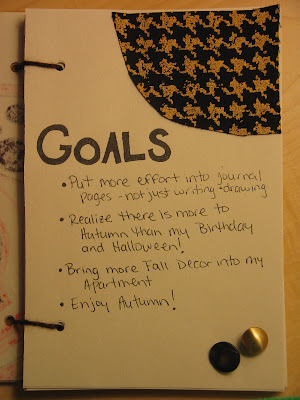 GOALS
• Put more effort into journal
pages - not just writing + drawing
• Realize there is more to
Autumn than my Birthday
and Halloween!
• Bring more Fall Decor into my
Apartment
• Enjoy Autumn!